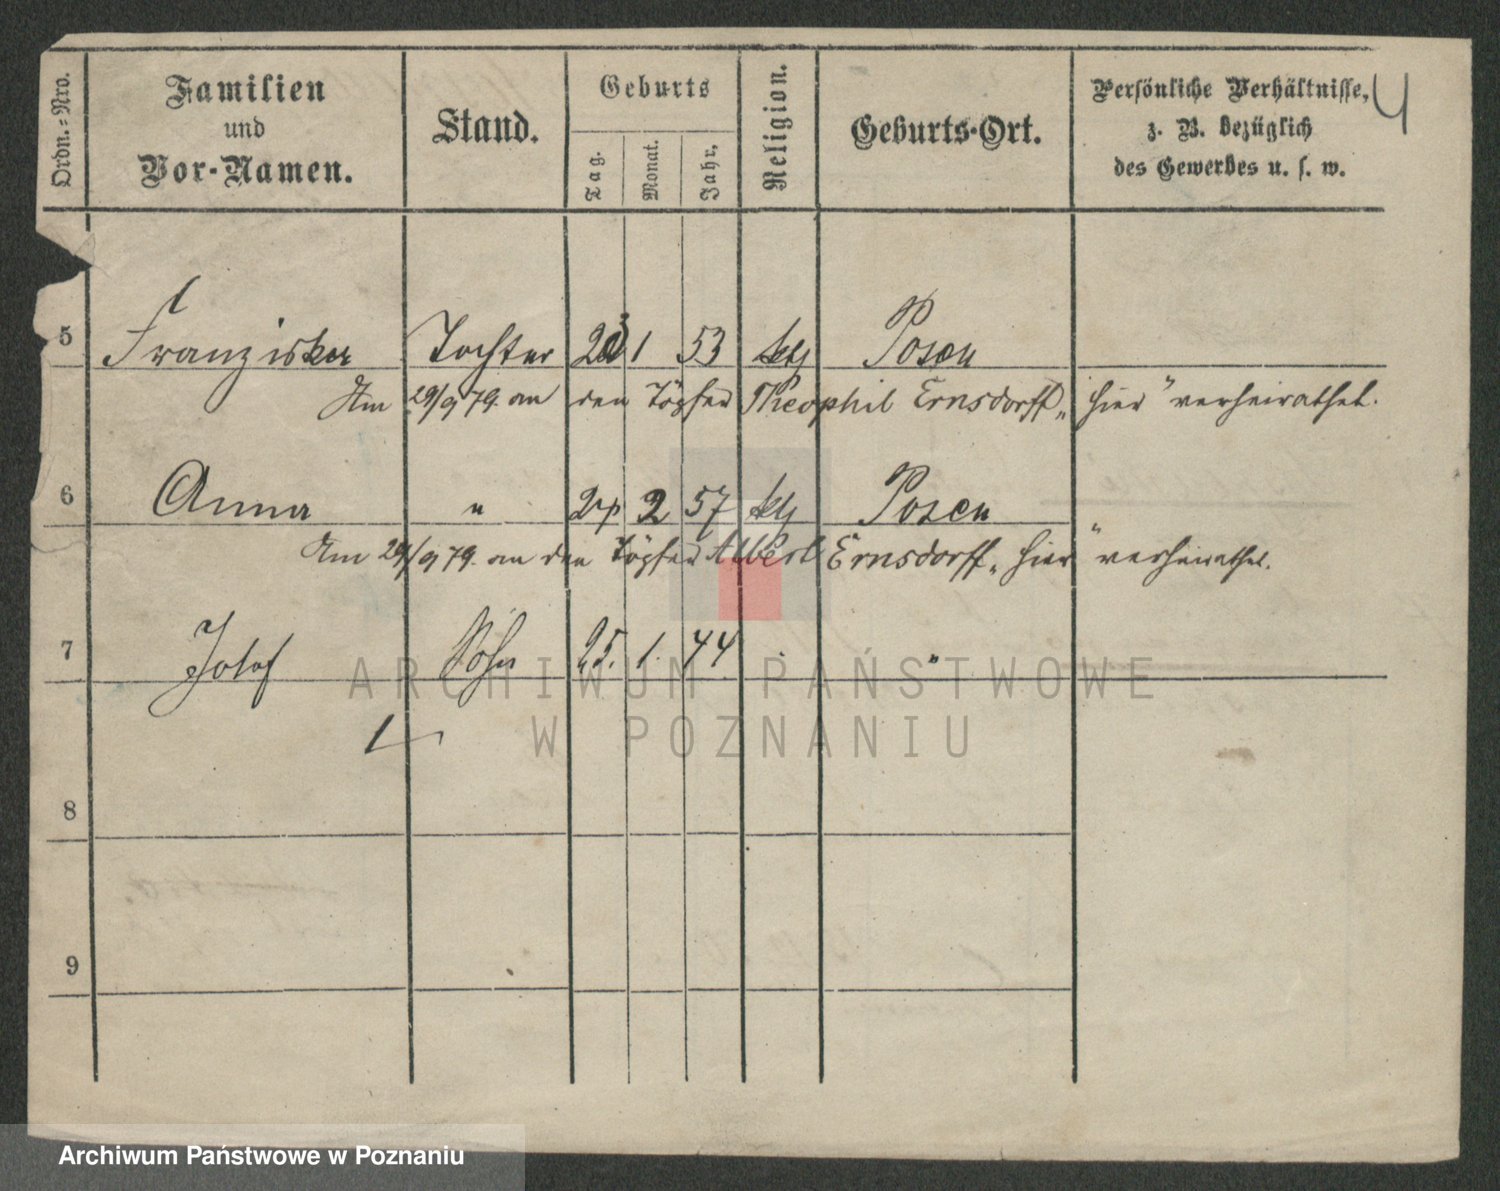 Ordn.-Nro.
Familien
und
Vor-Namen.
Stand.
Geburts
Tag.
Monat.
Jahr.
Religion.
Geburts-Ort.
Persönliche Verhältnisse,
z. B. bezüglich
des Gewerbes u. s. w.
4
5 Franziska Tochter 1 53 kth Posen
Am 29/9 79. an den Töpfer Theophil Ernsdorff "hier" verheirathet.
6 Anna " 2 57 kth Posen
Am 29/9 79. an den Töpfer Albert Ernsdorff "hier" verheirathet.
7 Josef Sohn 25. 1. 44 "
8
9
ARCHIWUM PAŃSTWOWE
W POZNANIU
Archiwum Państwowe w Poznaniu